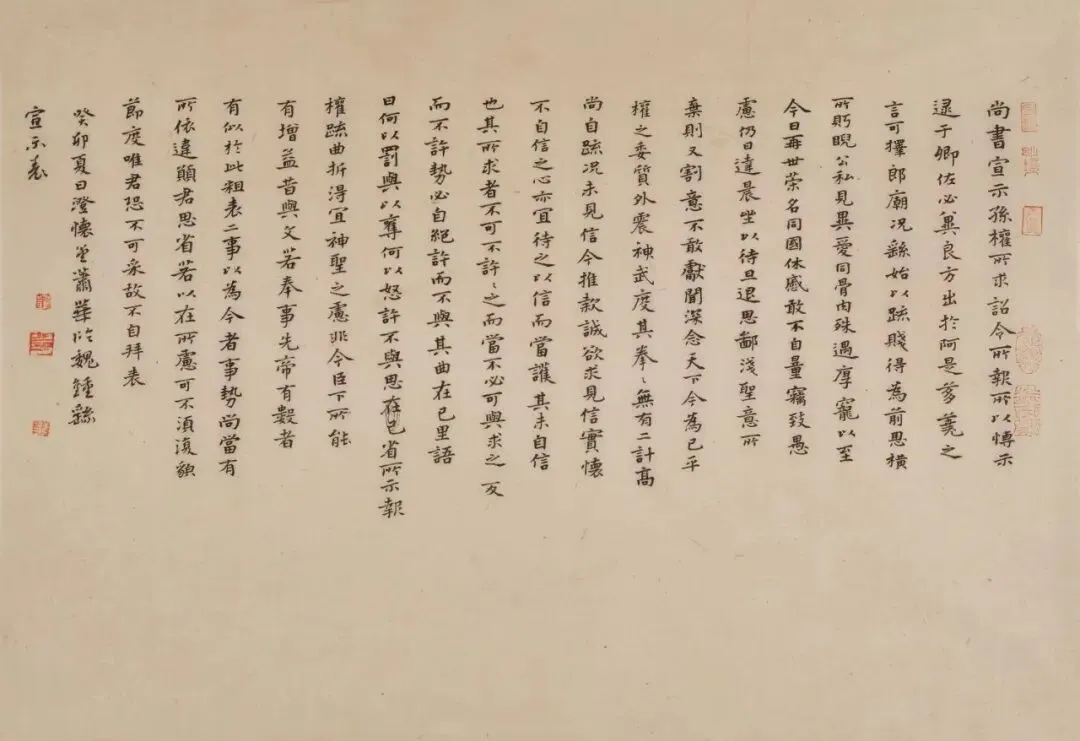 尚書宣示孫權所求詔令所報所以博示
逮于卿佐必冀良方出於阿是芻蕘之
言可擇郎廟况繇始以疏賤得為前恩橫
所眄睨公私見異愛同骨肉殊遇厚寵以至
今日再世榮名同國休慼敢不自量竊致愚
慮仍日達晨坐以待旦退思鄙淺聖意所
棄則又割意不敢獻聞深念天下今為已平
權之委質外震神武度其拳〻無有二計高
尚自疏况未見信今推款誠欲求見信實懷
不自信之心亦宜待之以信而當護其未自信
也其所求者不可不許〻之而當不必可與求之而
而不許勢必自絕許而不與其曲在己里語
曰何以罰與以奪何以怒許不與思在己省所示報
權疏曲折得宜神聖之慮非今臣下所能
有增益昔與文若奉事先帝有數者
有似於此粗表二事以為今者事勢尚當有
所依違願君思省若以在所慮可不須復貌
節度唯君恐不可采故不自拜表
癸卯夏日澄懷堂蕭華臨魏鍾繇
宣示表